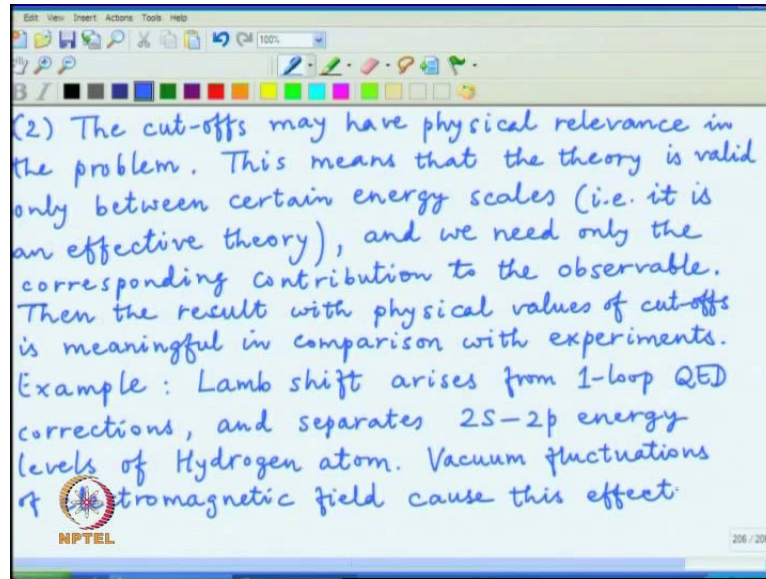 Edit View Insert Actions Tools Help
100%
B I
(2) The cut-offs may have physical relevance in
the problem. This means that the theory is valid
only between certain energy scales (i.e. it is
an effective theory), and we need only the
corresponding contribution to the observable.
Then the result with physical values of cut-offs
is meaningful in comparison with experiments.
Example: Lamb shift arises from 1-loop QED
corrections, and separates 2S-2p energy
levels of Hydrogen atom. Vacuum fluctuations
of electromagnetic field cause this effect.
NPTEL